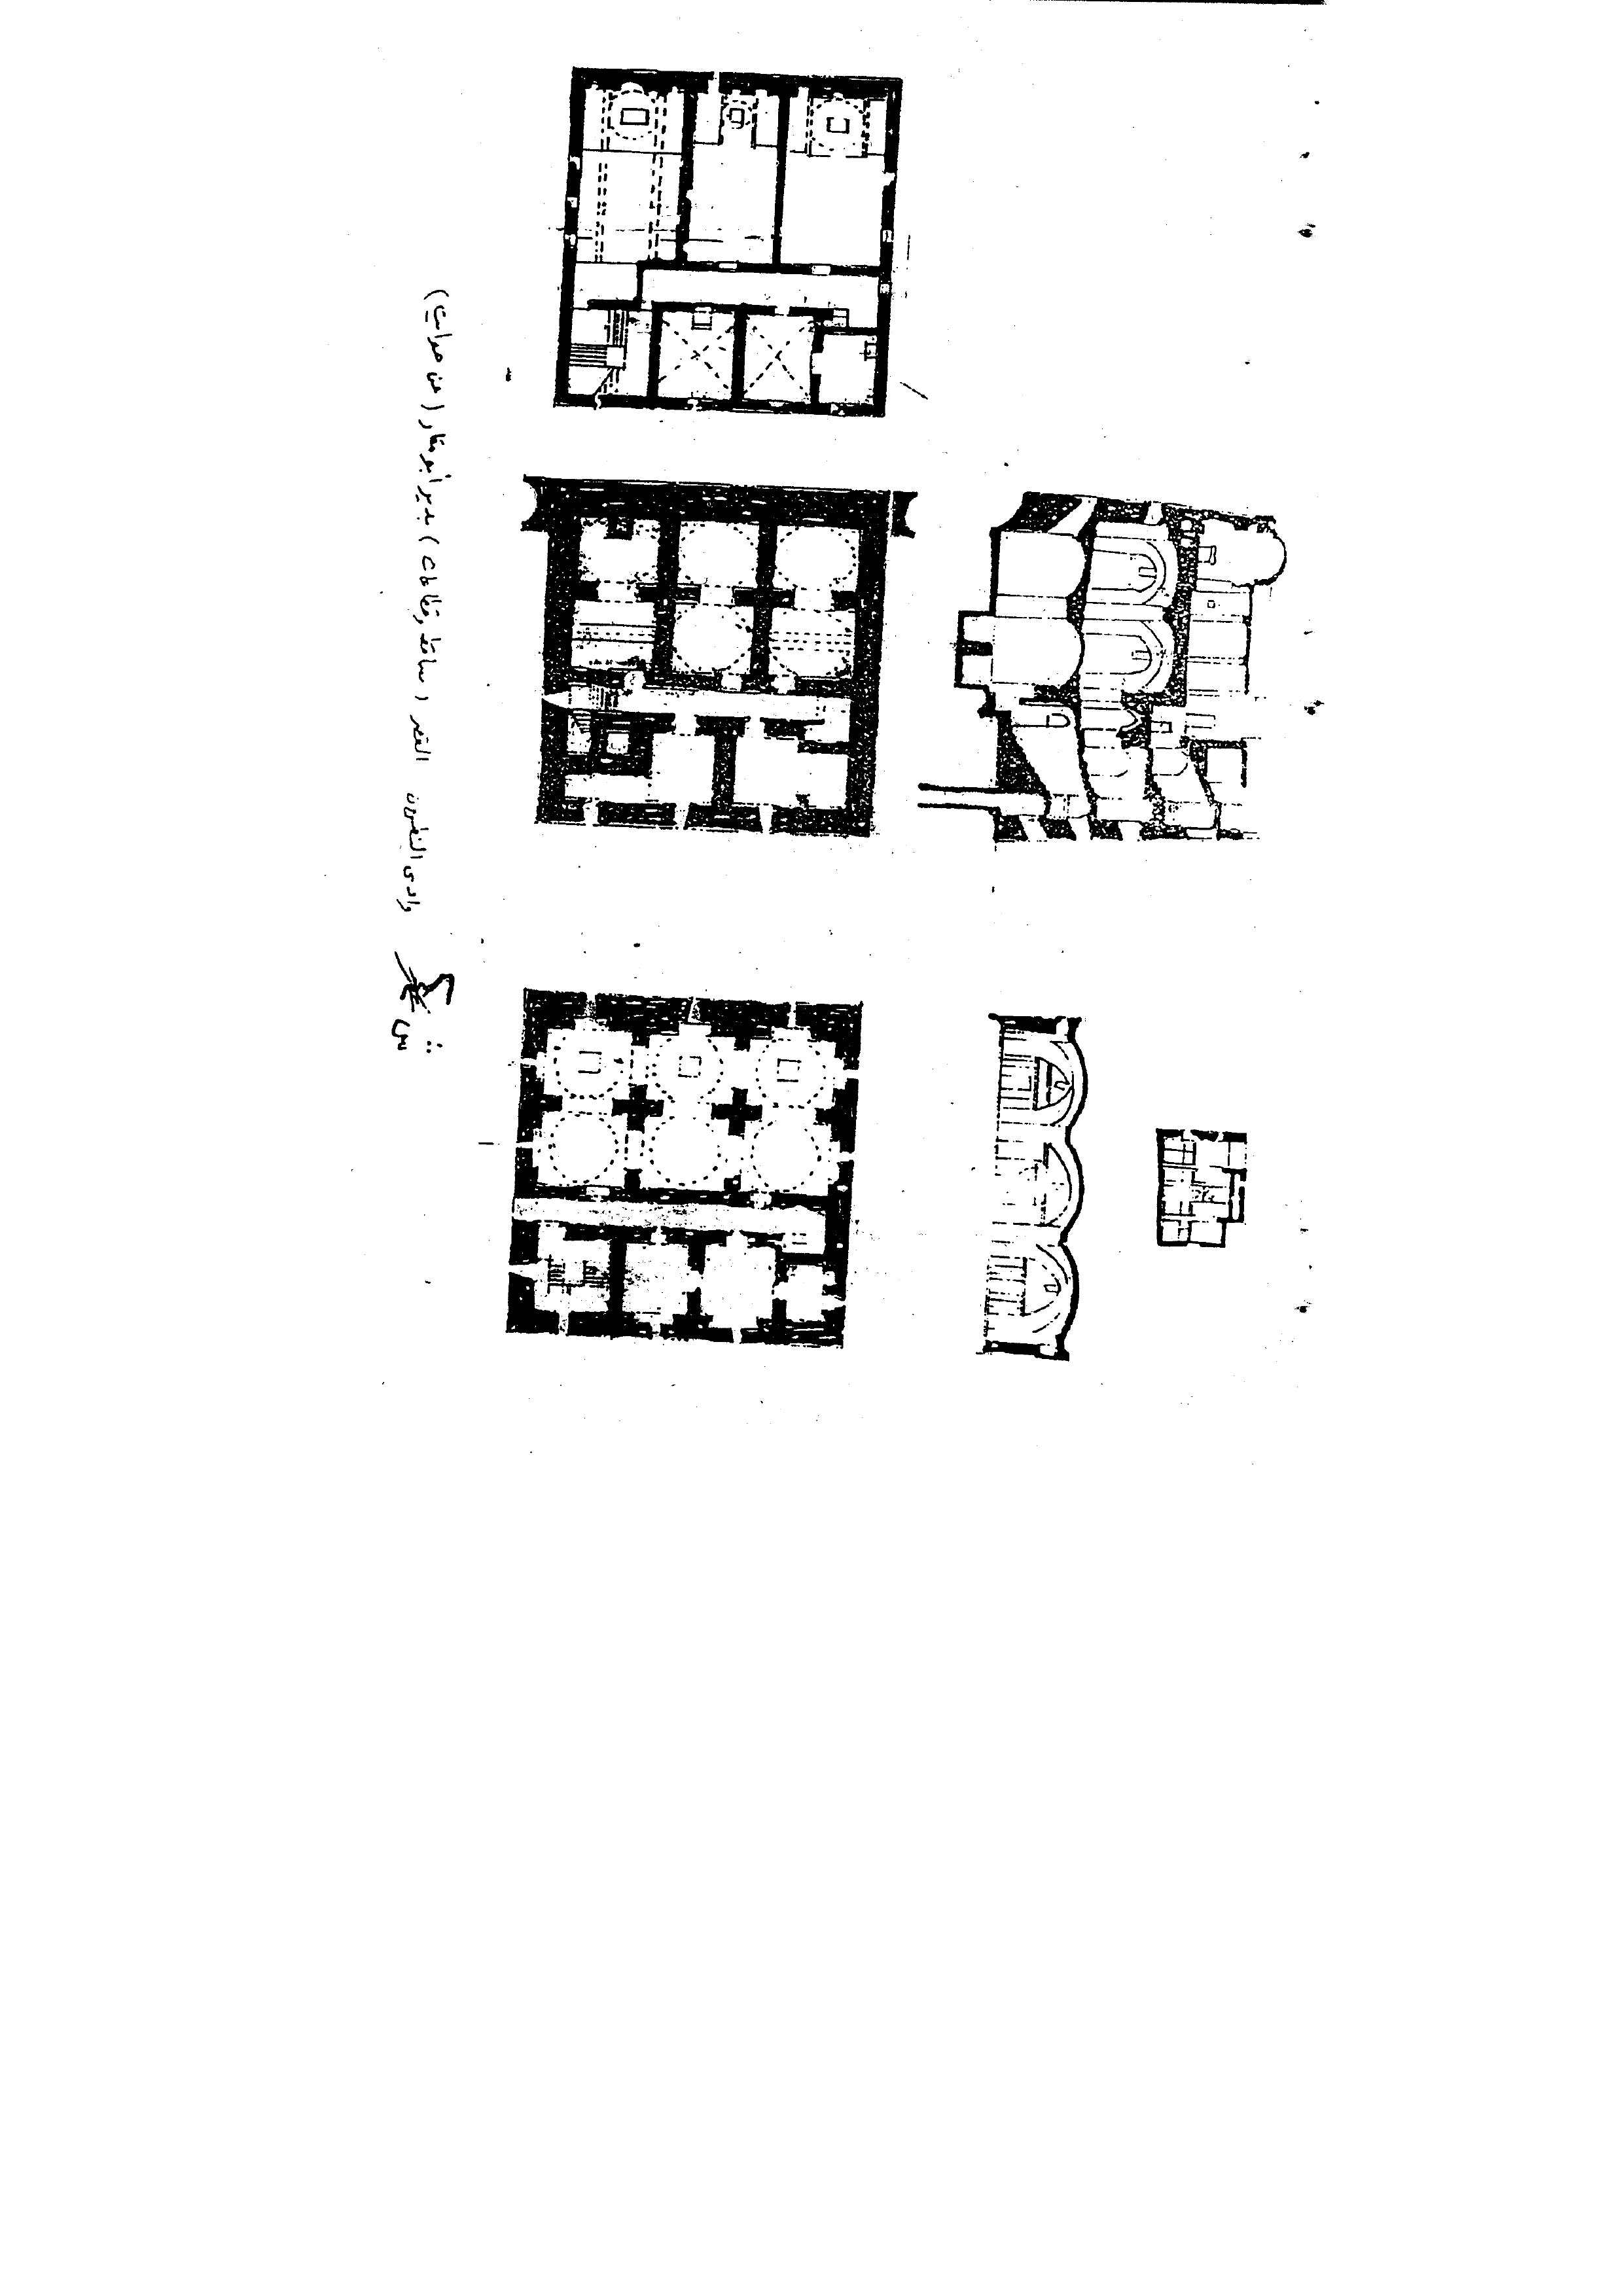 وادى النطرون القصر (مساقط وقطاعات) بدير أبو مقار (عن مونرية)